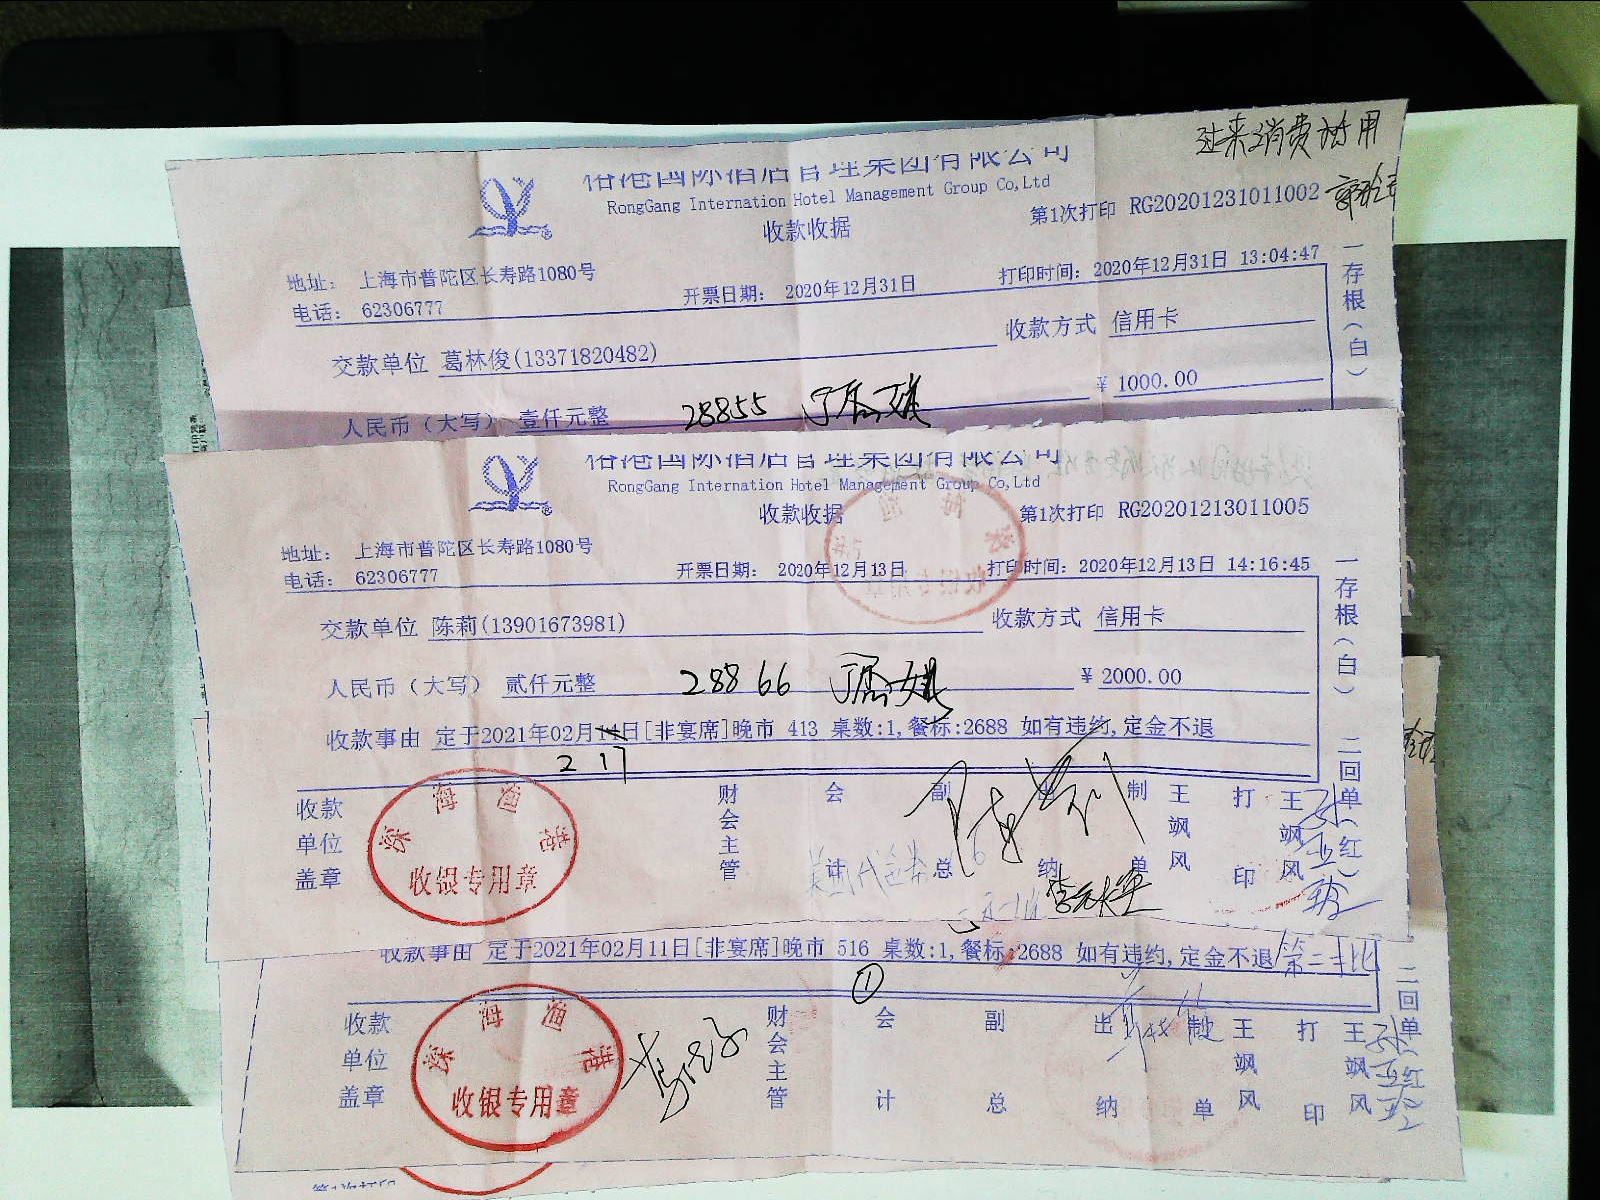 过来消费抵用
国际酒店管理集团有限公司
RongGang Internation Hotel Management Group Co,Ltd
收款收据
第1次打印 RG20201231011002
地址： 上海市普陀区长寿路1080号
电话： 62306777
开票日期： 2020年12月31日
打印时间：2020年12月31日 13:04:47
交款单位 葛林俊(13371820482)
收款方式 信用卡
人民币（大写） 壹仟元整
28855
¥ 1000.00
一存根(白)
国际酒店管理集团有限公司
RongGang Internation Hotel Management Group Co,Ltd
收款收据
第1次打印 RG20201213011005
地址： 上海市普陀区长寿路1080号
电话： 62306777
开票日期： 2020年12月13日
打印时间：2020年12月13日 14:16:45
交款单位 陈莉(13901673981)
收款方式 信用卡
人民币（大写） 贰仟元整
28866
¥ 2000.00
收款事由 定于2021年02月14日[非宴席]晚市 413 桌数:1,餐标:2688 如有违约,定金不退
2 17
一存根(白) 二回单(红)
收款单位盖章
深海渔港
收银专用章
财会主管
会计
副总
出纳
制单
王飒风
打印
王飒风
收款事由 定于2021年02月11日[非宴席]晚市 516 桌数:1,餐标:2688 如有违约,定金不退
①
二回单(红)
收款单位盖章
深海渔港
收银专用章
财会主管
会计
副总
出纳
制单
王飒风
打印
王飒风